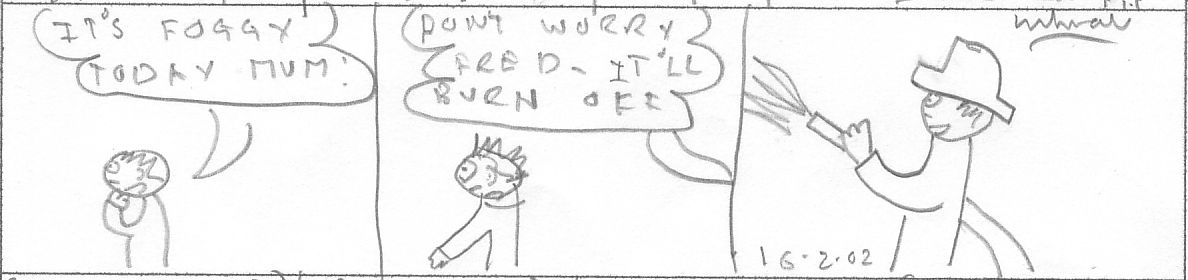 IT'S FOGGY
TODAY MUM!
DON'T WORRY
FRED. IT'LL
BURN OFF
16.2.02